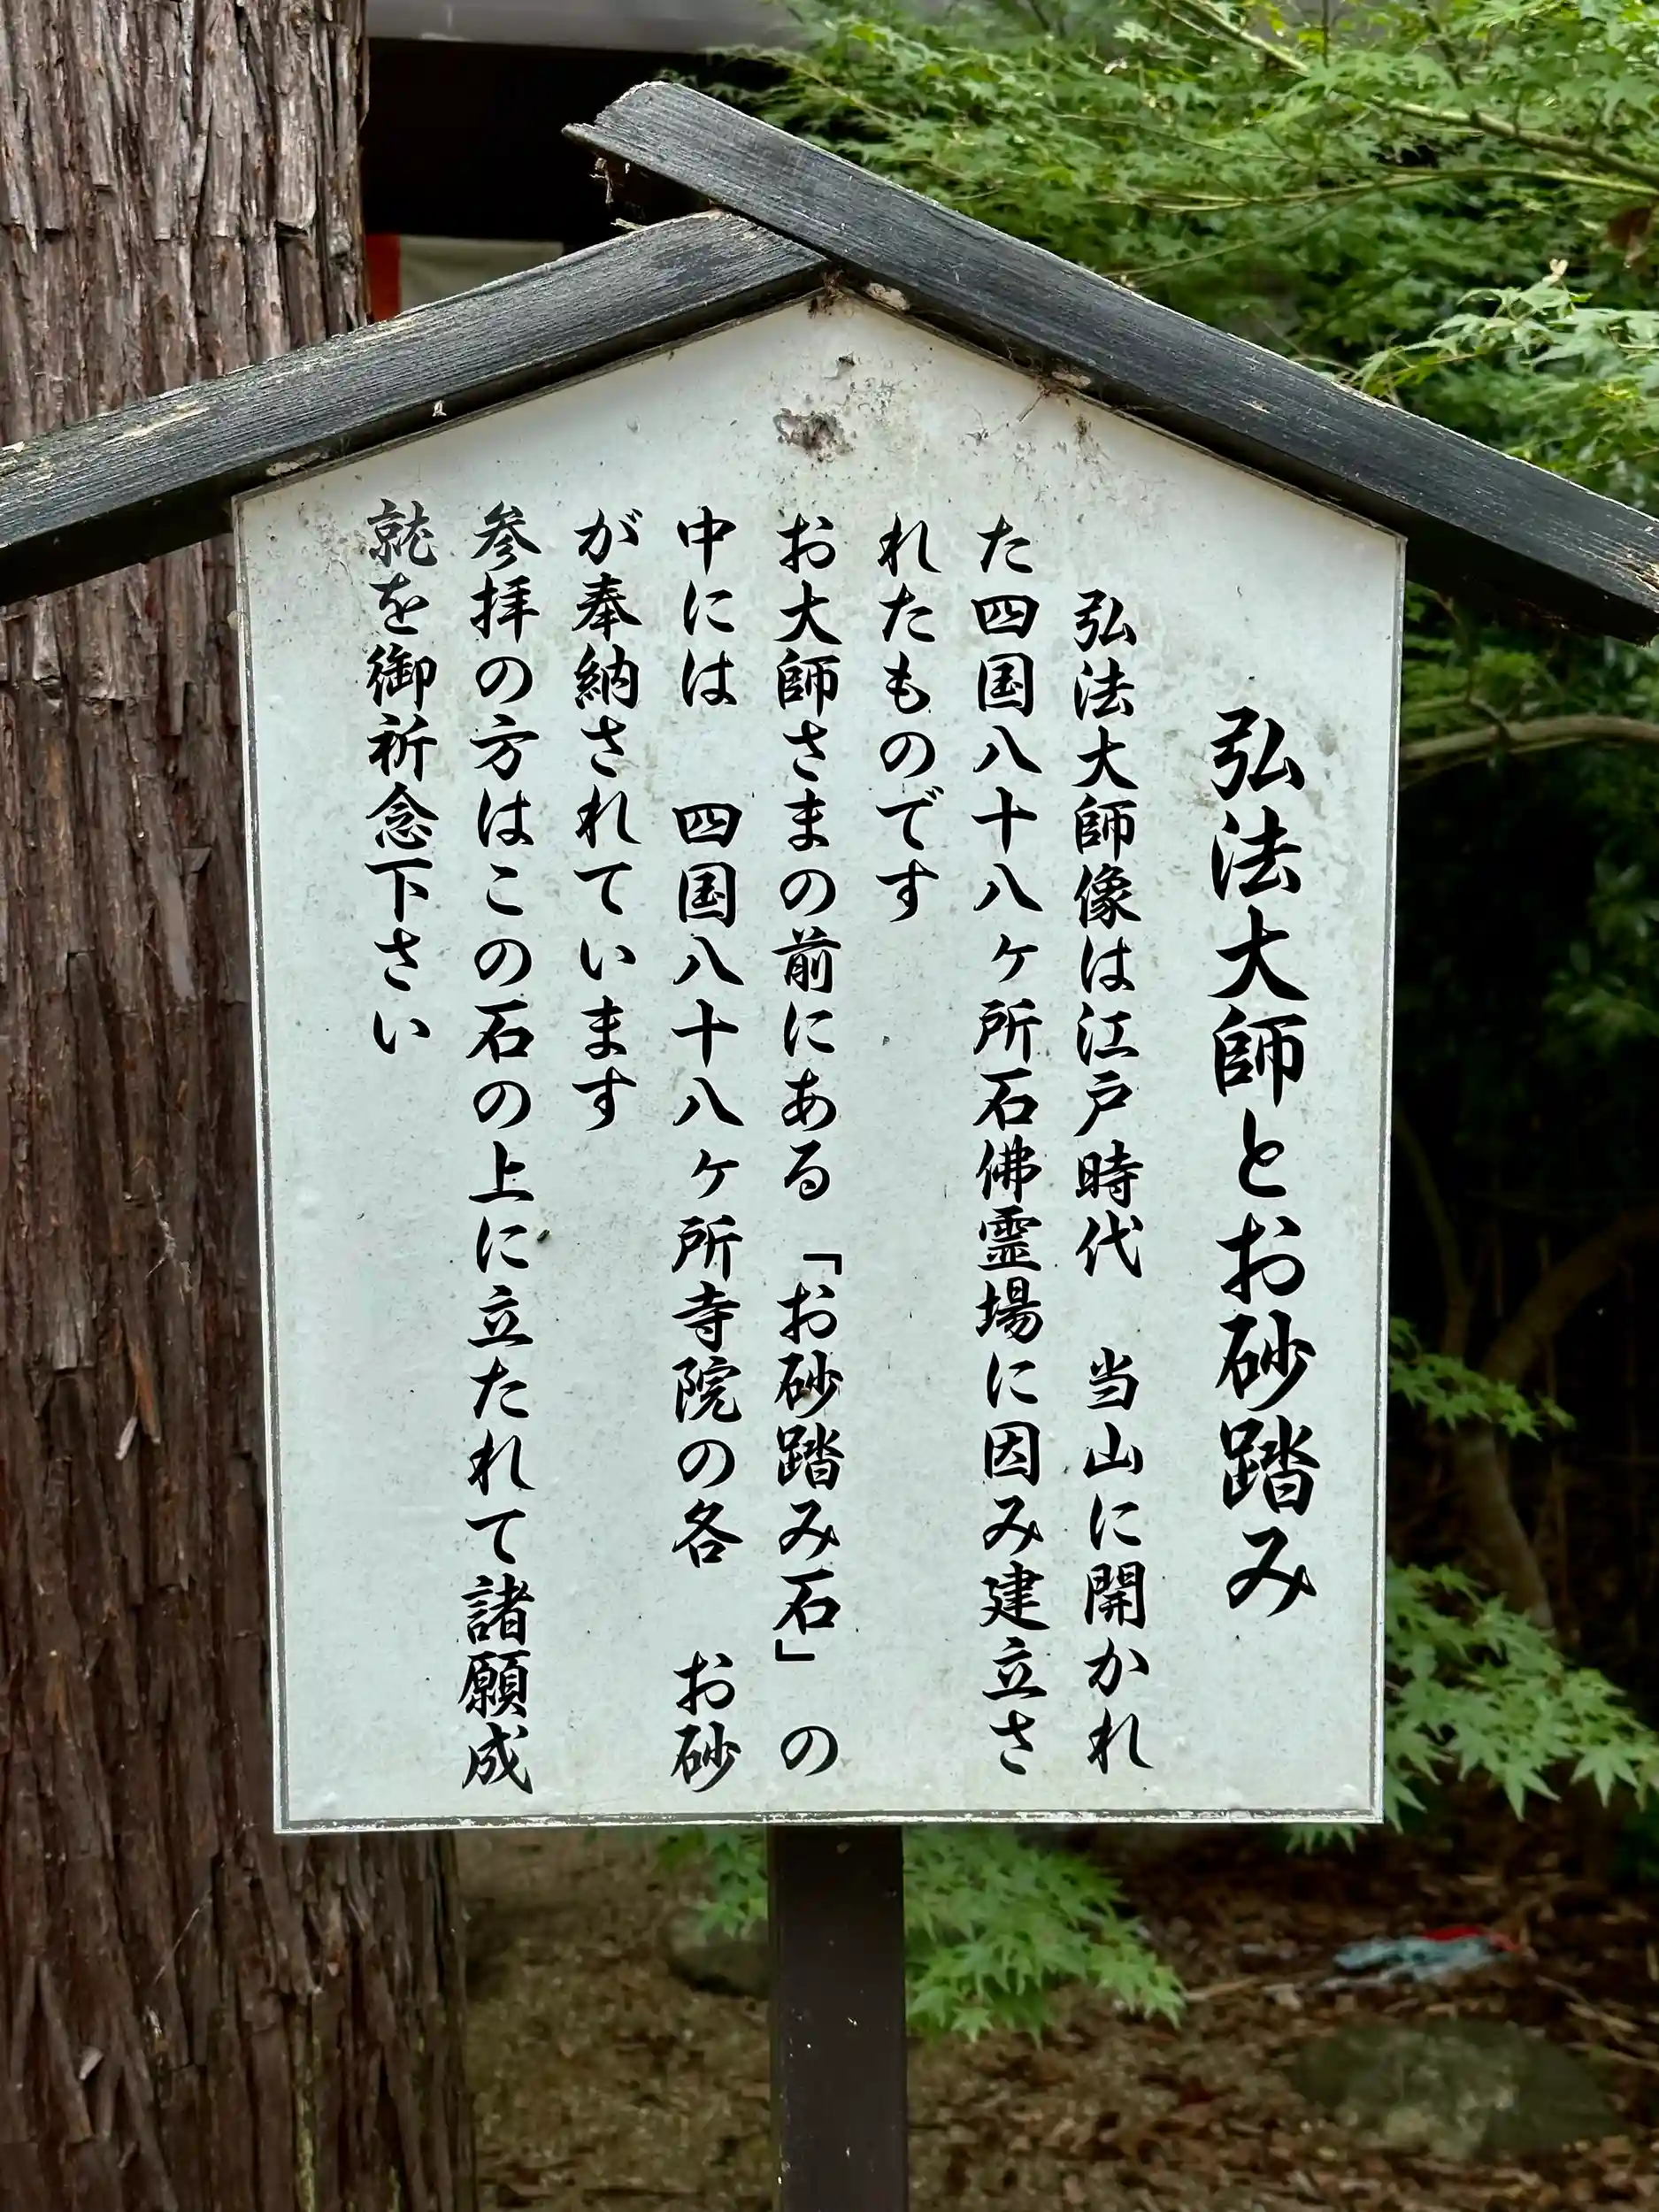 弘法大師とお砂踏み
弘法大師像は江戸時代　当山に開かれ
た四国八十八ヶ所石佛霊場に因み建立さ
れたものです
お大師さまの前にある「お砂踏み石」の
中には　四国八十八ヶ所寺院の各　お砂
が奉納されています
参拝の方はこの石の上に立たれて諸願成
就を御祈念下さい